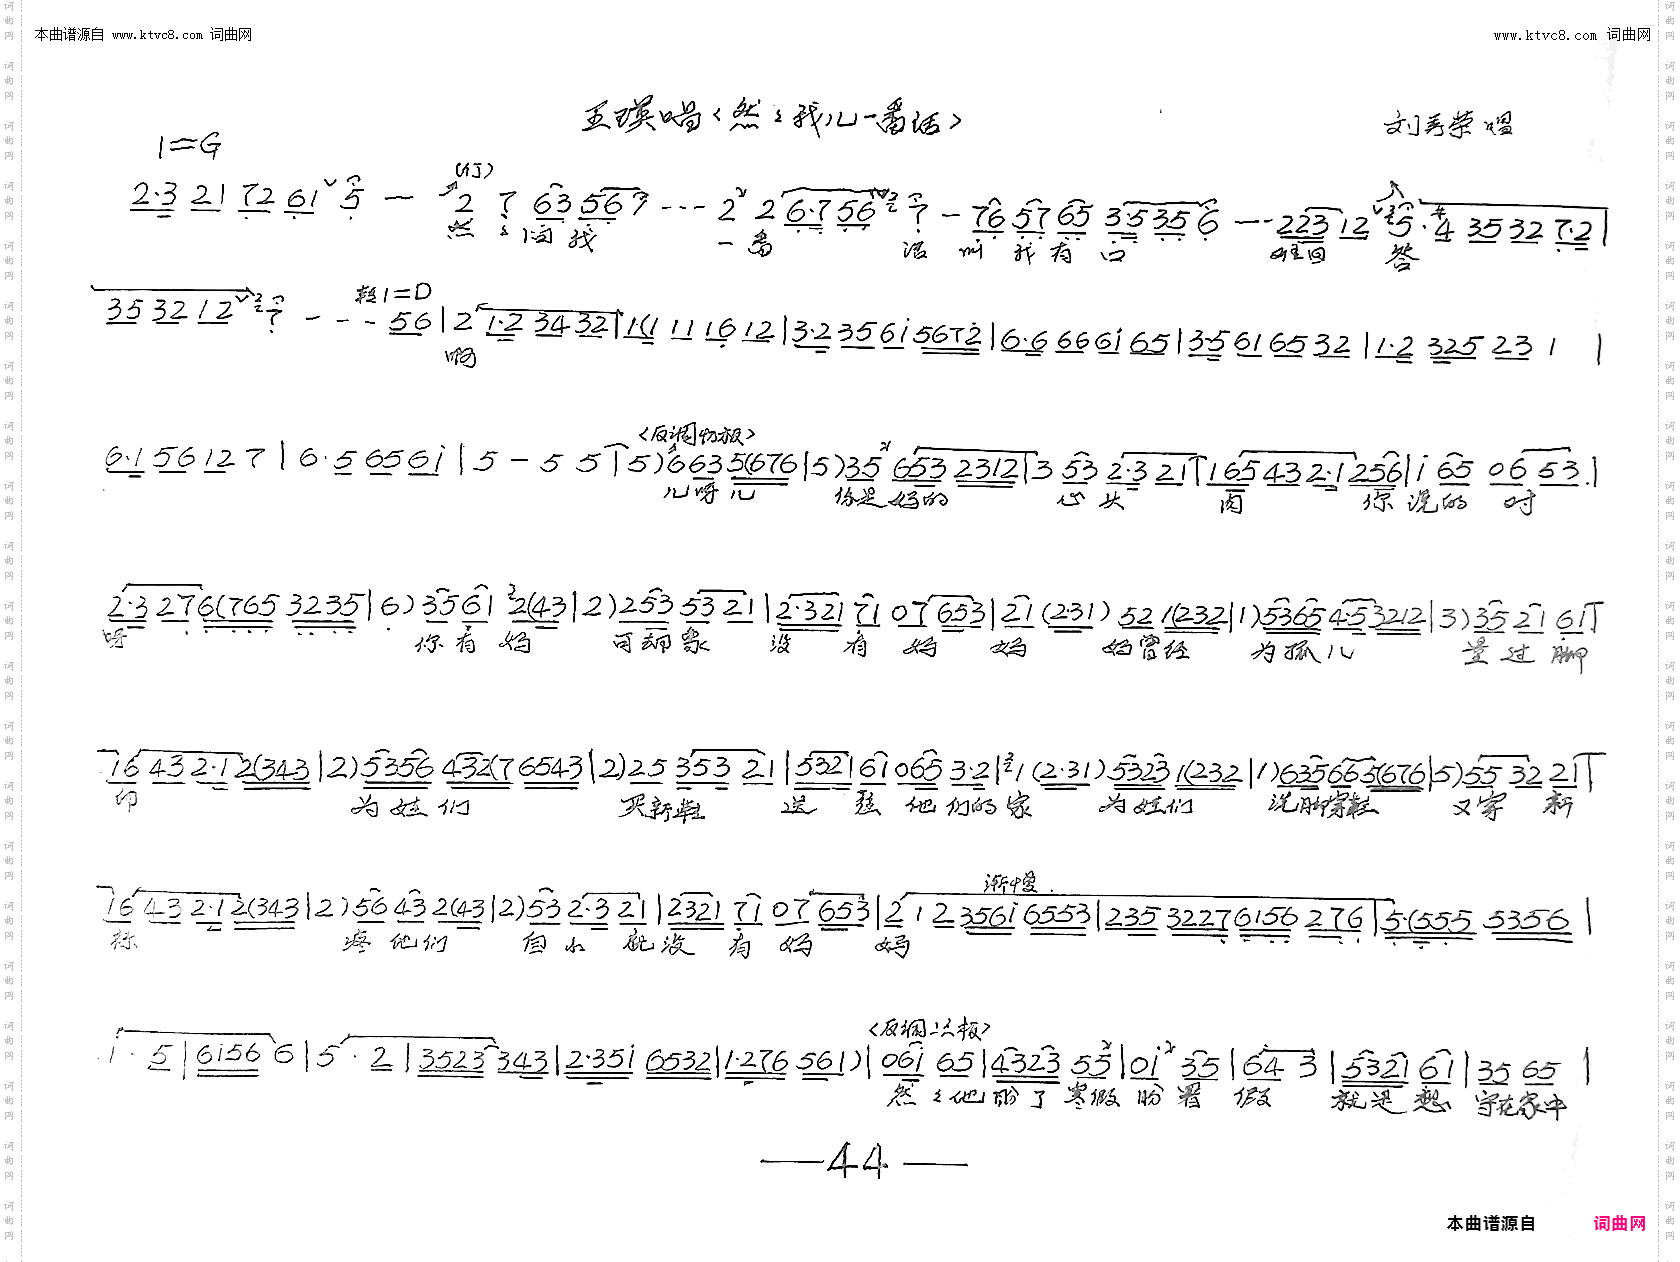 本曲谱源自 www.ktvc8.com 词曲网
www.ktvc8.com 词曲网
王瑛唱〈然々我儿一番话〉
刘秀荣唱
1=G
(仃)
2·3 21 72 61 5 — 2 7 63 56 7 --- 2 2 6·7 56 7 — 76 57 65 3·535 6 --- 223 12 5· 4 35 32 7·2 |
然々问我 一番 话 叫我有口 难回 答
35 32 12 7 - - - 转1=D 56 | 2 1·2 34 32 | 1(1 11 16 12 | 3·2 35 6i 5672 | 6·6 66 6i 65 | 35 61 65 32 | 1·2 325 23 1 |
啊
〈反调切板〉
6·1 56 12 7 | 6·5 65 6i | 5 - 5 5 | 5) 6 63 5(676 | 5) 35 653 2312 | 3 53 2·3 21 | 165 43 2·1 256 | i 65 06 53 |
儿呀儿 你是妈的 心头 肉 你说的 对
2·3 27 6(765 3235 | 6) 35 61 2(43 | 2) 253 53 21 | 2·321 71 07 653 | 21 (2·31) 52 1(232 | 1) 5365 4·5 3212 | 3) 35 21 61
呀 你有妈 可 象 没有妈妈 妈曾经 为孤儿 量过脚
16 43 2·1 2(343 | 2) 5356 432(7 6543 | 2) 25 353 21 | 5321 61 065 3·2 | 1 (2·31) 5323 1(232 | 1) 635 665(676 | 5) 55 32 21
印 为娃们 买新鞋 送到他们的家 为娃们 洗脚穿鞋 又穿新
渐慢
16 43 2·1 2(343 | 2) 56 43 2(43 | 2) 53 2·3 21 | 2321 71 07 653 | 2 1 2 356i 6553 | 235 3227 6156 276 | 5·(555 5356 |
袜 疼他们 自小就没有妈妈
〈反调二六板〉
i · 5 | 6i56 6 | 5 · 2 | 3523 343 | 2·35i 6532 | 1·276 561) | 06i 65 | 4323 53 | 0i 35 | 64 3 | 5321 61 | 35 65 |
然々他盼了寒假盼署假 就是想 守在家中
—44—
本曲谱源自 词曲网